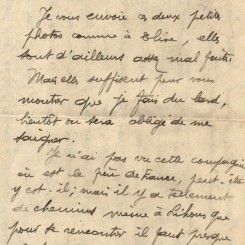 Je vous envoie ces deux petites
photos comme à Elise, elles
sont d'ailleurs assez mal faites.
Mais elles suffisent pour vous
montrer que je fais du lard,
bientôt on sera obligé de me
saigner.
Je n'ai pas vu cette compagnie
où est le fils de France, peut-être
y est-il; mais il y a tellement
de chemins même à que
pour se rencontrer il faut presque